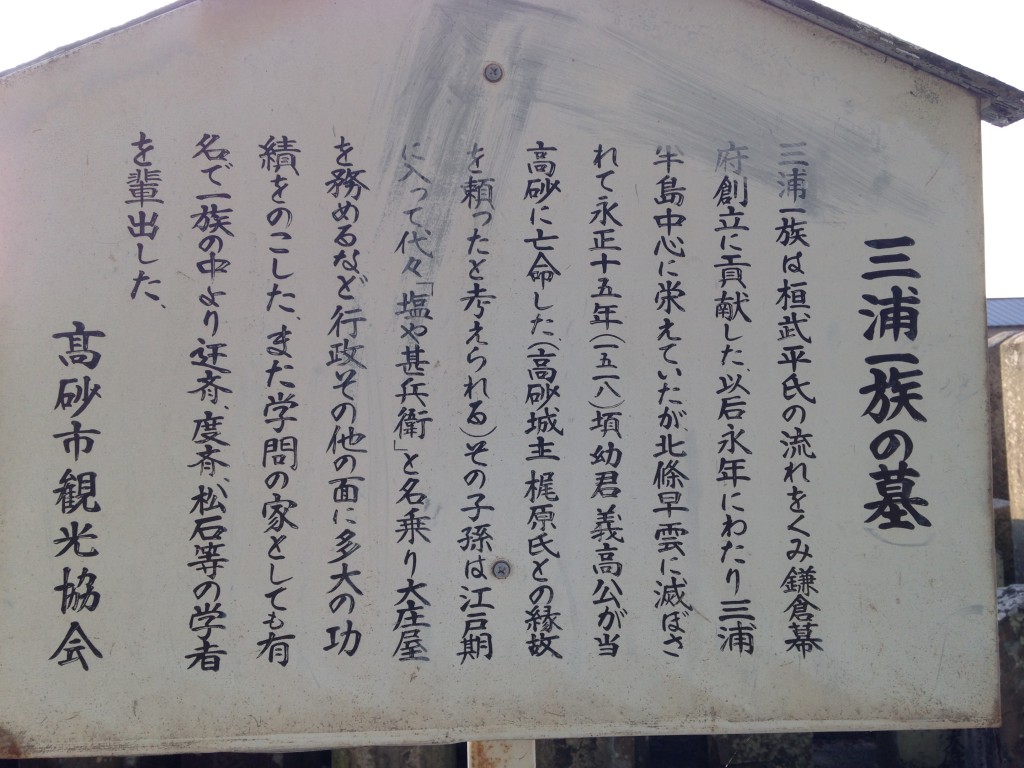 三浦一族の墓
三浦一族は桓武平氏の流れをくみ鎌倉幕
府創立に貢献した、以后永年にわたり三浦
半島中心に栄えていたが、北條早雲に滅ぼさ
れて永正十五年(一五一八)頃幼君義高公が当
高砂に亡命した(高砂城主梶原氏との縁故
を頼ったと考えられる)その子孫は江戸期
に入って代々「塩や甚兵衛」と名乗り大庄屋
を務めるなど行政その他の面に多大の功
績をのこした、また学問の家としても有
名で一族の中より迂斉、度斉、松石等の学者
を輩出した、
高砂市観光協会